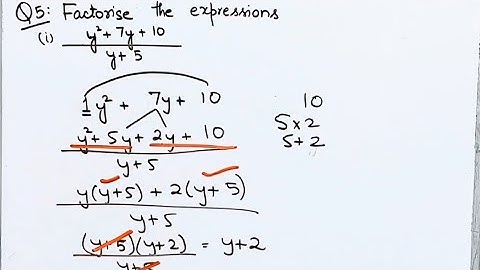 Q5: Factorise the expressions
(i) y² + 7y + 10
y + 5
1y² + 7y + 10
10
y² + 5y + 2y + 10
5 x 2
5 + 2
y + 5
y(y+5) + 2(y + 5)
y+5
(y+5)(y+2) = y+2
y+5